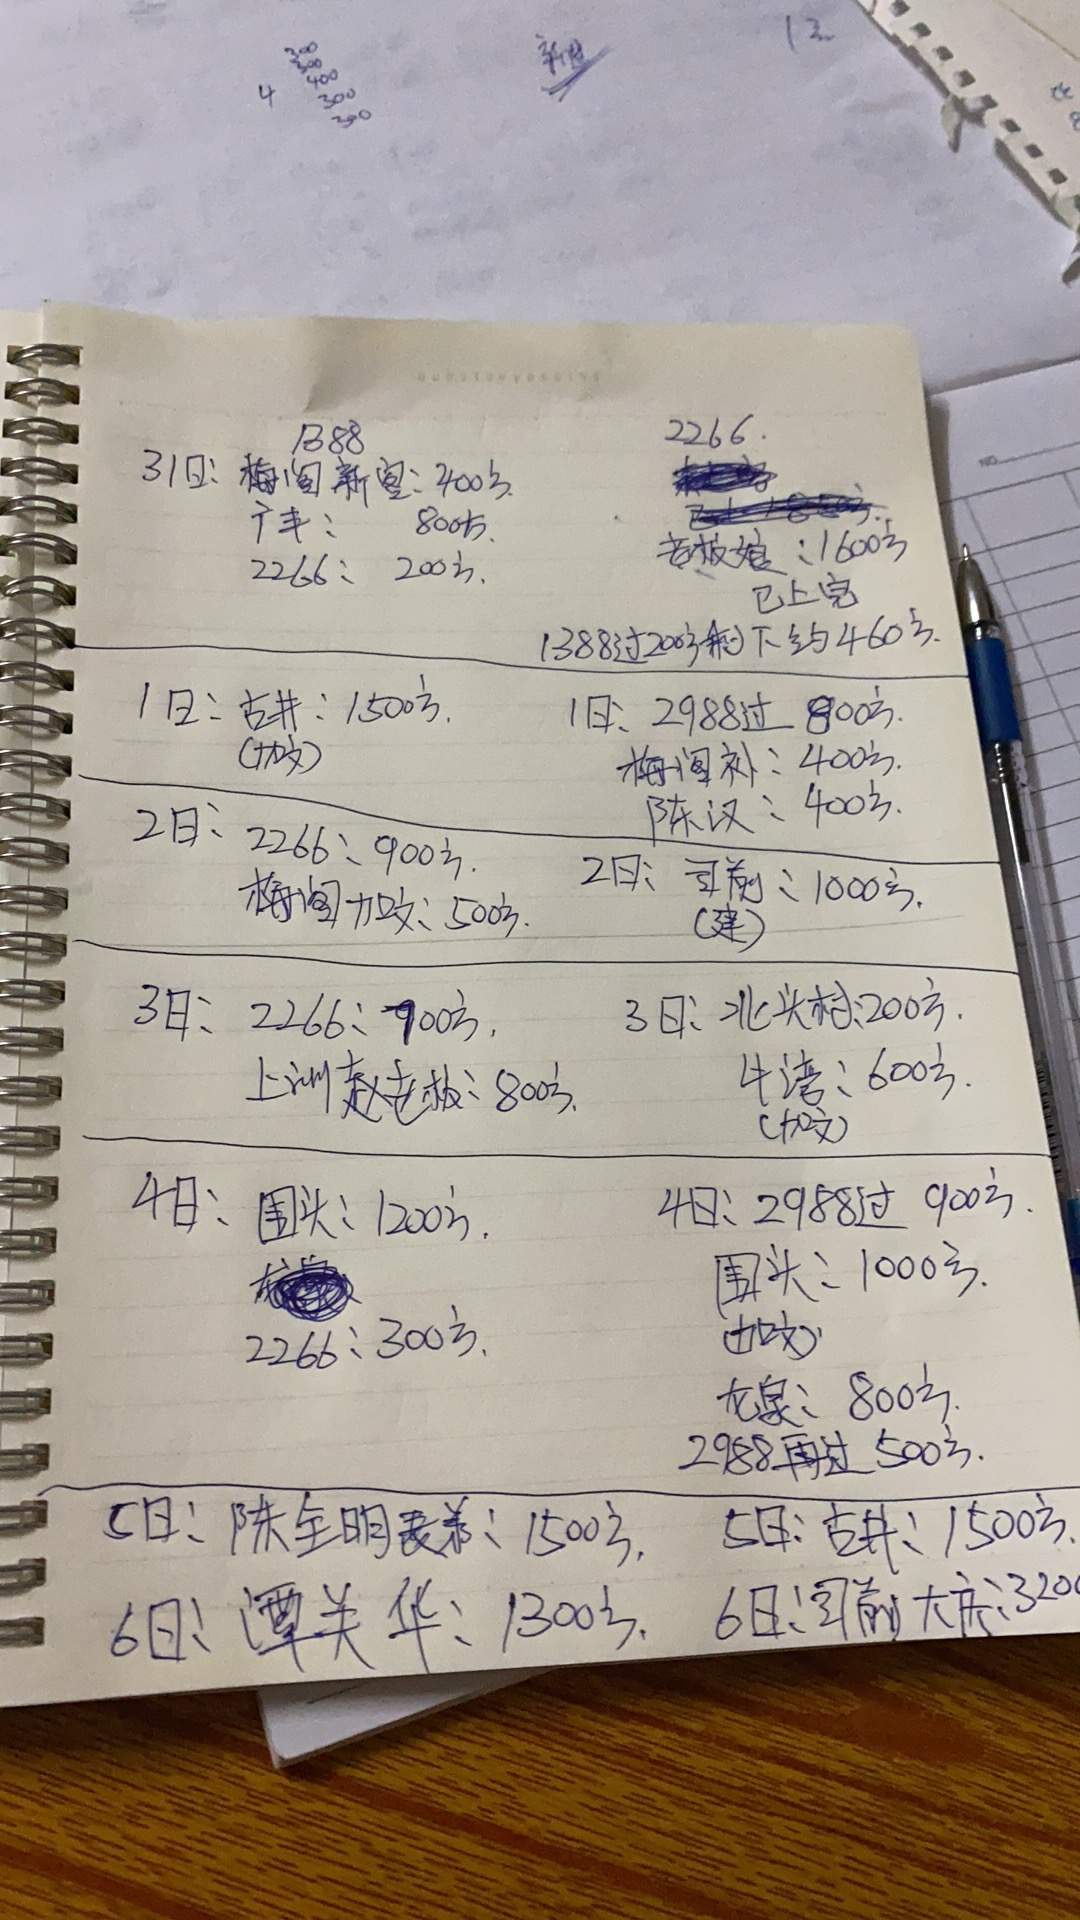 300
300
400
4
300
300
13
1388
2266.
31日: 梅阁新宫: 400方.
广丰: 800方.
老板娘: 1600方
2266: 200方.
已上完
1388过200方剩下约460方.
1日: 古井: 1500方.
(加文)
1日: 2988过 800方.
梅阁补: 400方.
陈汉: 400方.
2日: 2266: 900方.
梅阁加文: 500方.
2日: 司前: 1000方.
(建)
3日: 2266: 900方.
上洲赵老板: 800方.
3日: 北头村: 200方.
牛湾: 600方.
(加文)
4日: 围头: 1200方.
2266: 300方.
4日: 2988过 900方.
围头: 1000方.
(加文)
龙泉: 800方.
2988再过 500方.
5日: 陈全明表弟: 1500方.
5日: 古井: 1500方.
6日: 谭关华: 1300方.
6日: 司前大庆: 3200